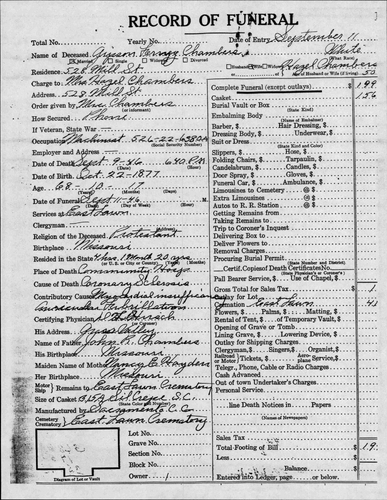 RECORD OF FUNERAL
Total No. Yearly No. Date of Entry September 11
Name of Deceased Chambers White
Married Single Widowed Divorced Husband or Wife of Hazel Chambers
Residence 528 Mill St.
Charge to Mrs Hazel Chambers
Address 528 Mill St.
Order given by Mrs Chambers
How Secured
If Veteran, State War
Occupation Machinist 526-22-
Employer and Address (Social Security Number)
Date of Death Sept 9-46 6:40 P.M.
Date of Birth Oct 22-1877
Age 68-10-17
Date of Funeral Sept 11-46 M.
Services at East Lawn
Clergyman
Religion of the Deceased Protestant
Birthplace Missouri
Resided in the State
Place of Death Community Hosp
Cause of Death Coronary Sclerosis
Contributory Causes Myocardial insufficiency
Auricular Fibrillation
Certifying Physician
His Address Grass Valley
Name of Father John R. Chambers
His Birthplace Missouri
Maiden Name of Mother Nancy Hayden
Her Birthplace Missouri
Remains to East Lawn Crematory
Size of Casket
Manufactured by Sacramento C. Co
Cemetery Crematory East Lawn Crematory
Lot No.
Grave No.
Section No.
Block No.
Owner
Diagram of Lot or Vault
Complete Funeral (except outlays) $
Casket 156
Burial Vault or Box (State Kind)
Embalming Body (State Name)
Barber, $ Hair Dressing, $
Dressing Body, $ Underwear, $
Suit or Dress (State Kind and Color)
Slippers, $ Hose, $
Folding Chairs, $ Tarpaulin, $
Candelabrum, $ Candles, $
Door Spray, $ Gloves, $
Funeral Car, $ Ambulance, $
Limousines to Cemetery @ $
Extra Limousines @ $
Autos to R. R. Station @ $
Getting Remains from
Taking Remains to
Trip to Coroner's Inquest
Delivering Box to
Deliver Flowers to
Removal Charges
Procuring Burial Permit
Certif. Copies of Death Certificates No.
Pall Bearer Service, $ Use of Chapel, $
Gross Total for Sales Tax $
Outlay for Lot
Cremation East Lawn
Flowers, $ Palms, $ Matting, $
Rental of Tent, $ of Temporary Vault, $
Opening of Grave or Tomb
Lining Grave, $ Lowering Device, $
Outlay for Shipping Charges
Clergyman, $ Singers, $ Organist, $
Railroad or Motor Tickets, $ Aeroplane Service, $
Telegr., Phone, Cable or Radio Charges
Cash Advanced
Out of town Undertaker's Charges
Personal Service
line Death Notices in Papers
(Names of Newspapers)
Sales Tax
Total Footing of Bill $
Less
Balance
Entered into Ledger, page or below.